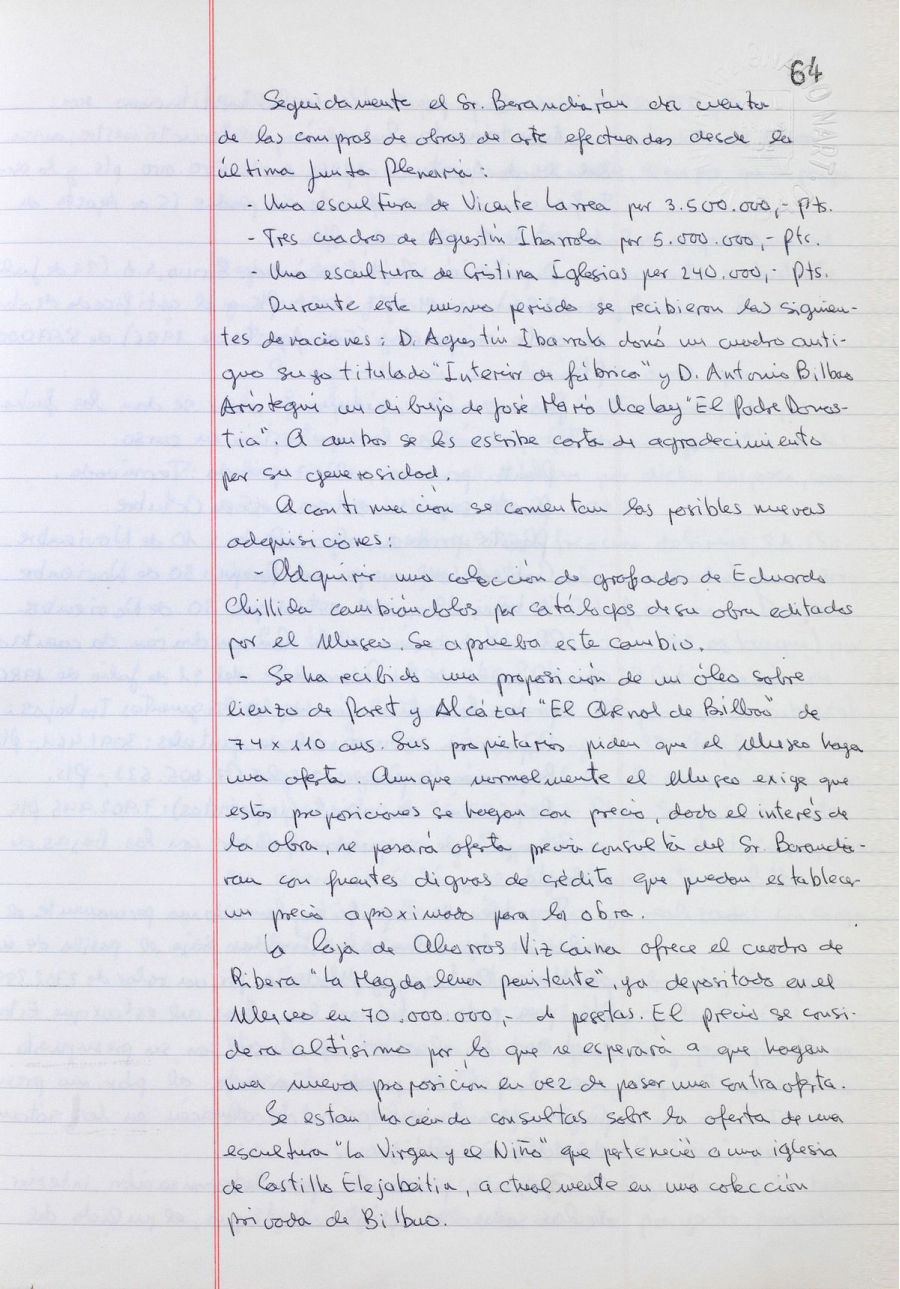 64
Seguidamente el Sr. Barandiarán da cuenta
de las compras de obras de arte efectuadas desde la
última Junta Plenaria:
- Una escultura de Vicente Larrea por 3.500.000,- pts.
- Tres cuadros de Agustín Ibarrola por 5.000.000,- ptс.
- Una escultura de Cristina Iglesias por 240.000,- Pts.
Durante este mismo periodo se recibieron las siguien-
tes donaciones: D. Agustín Ibarrola donó un cuadro anti-
guo suyo titulado "Interior de fábrica" y D. Antonio Bilbao
Arístegui un dibujo de José María Ucelay "El Padre Donos-
tia". A ambos se les escribe carta de agradecimiento
por su generosidad.
A continuación se comentan las posibles nuevas
adquisiciones:
- Adquirir una colección de grabados de Eduardo
Chillida cambiándolos por catálogos de su obra editados
por el Museo. Se aprueba este cambio.
- Se ha recibido una proposición de un óleo sobre
lienzo de Paret y Alcázar "El Arenal de Bilbao" de
74 x 110 cms. Sus propietarios piden que el Museo haga
una oferta. Aunque normalmente el Museo exige que
estas proposiciones se hagan con precio, dado el interés de
la obra, se pasará oferta previa consulta del Sr. Barandia-
ran con fuentes dignas de crédito que puedan establecer
un precio aproximado para la obra.
La Caja de Ahorros Vizcaina ofrece el cuadro de
Ribera "La Magdalena penitente", ya depositado en el
Museo en 70.000.000,- de pesetas. El precio se consi-
dera altísimo por lo que se esperará a que hagan
una nueva proposición en vez de pasar una contraoferta.
Se estan haciendo consultas sobre la oferta de una
escultura "La Virgen y el Niño" que perteneció a una iglesia
de Castillo Elejabeitia, actualmente en una colección
privada de Bilbao.